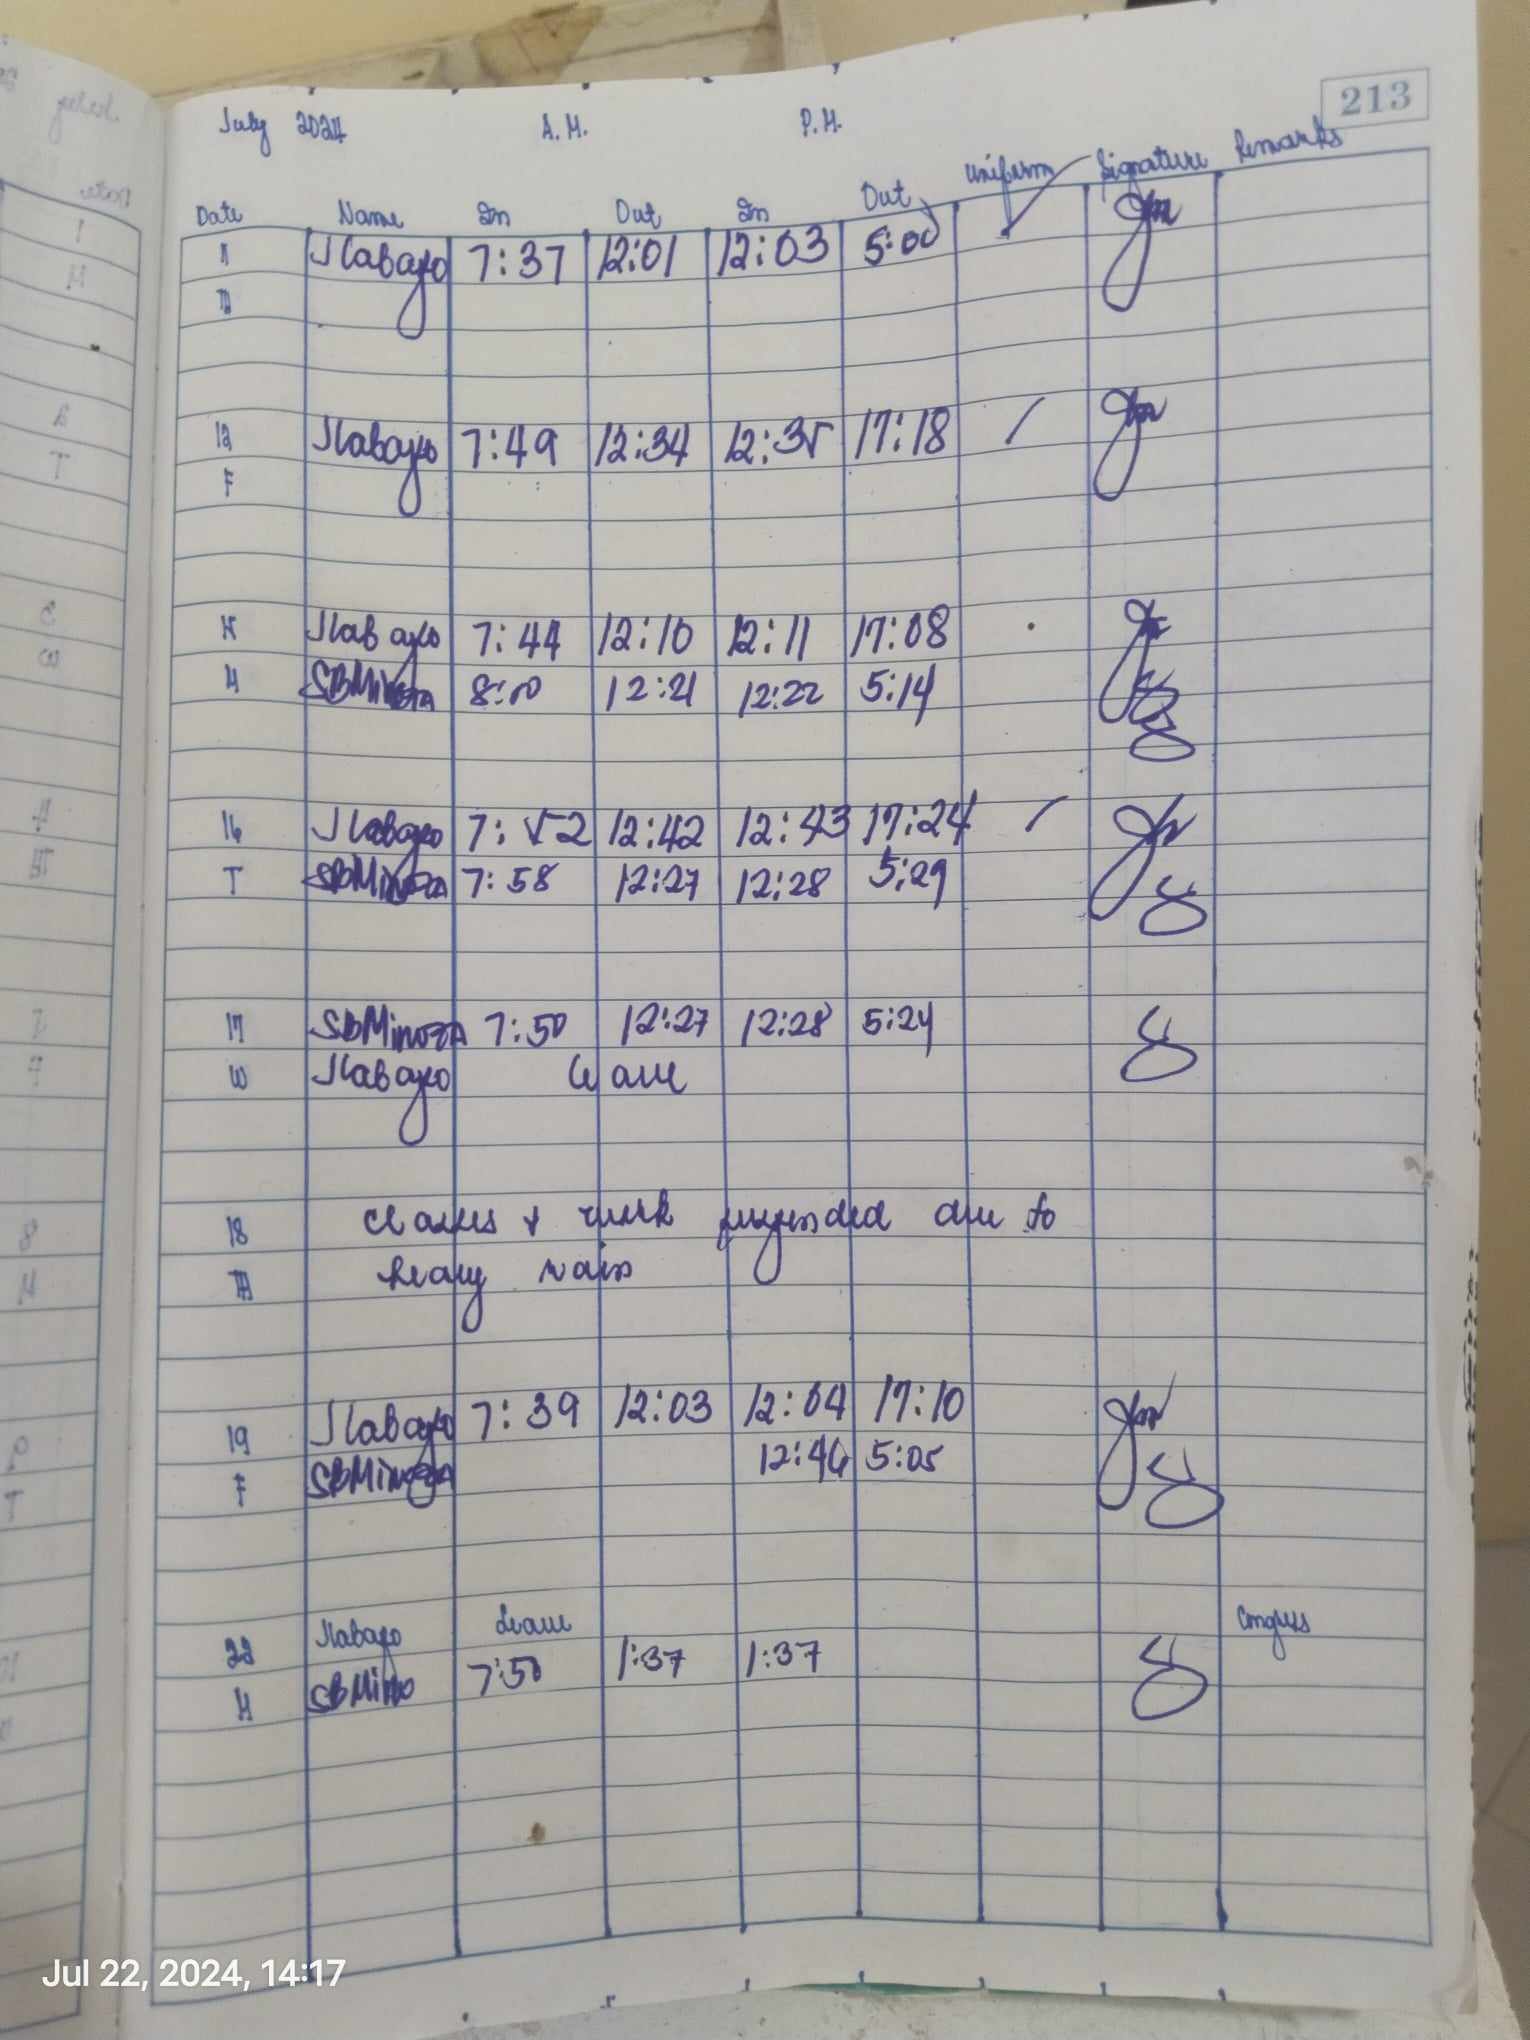 213
July 2024 A.M. P.M.
Date Name In Out In Out Uniform Signature Remarks
11 Jlabayo 7:37 12:01 12:03 5:00
TH
12 Jlabayo 7:49 12:34 12:35 17:18 /
F
15 Jlabayo 7:44 12:10 12:11 17:08
M SBMinoza 8:00 12:21 12:22 5:14
16 Jlabayo 7:52 12:42 12:43 17:24 /
T SBMinoza 7:58 12:27 12:28 5:29
17 SBMinoza 7:50 12:27 12:28 5:24
W Jlabayo Leave
18 classes & work suspended due to
TH heavy rain
19 Jlabayo 7:39 12:03 12:04 17:10
F SBMinoza 12:46 5:05
22 Jlabayo Leave
M SBMino 7:50 1:37 1:37
Jul 22, 2024, 14:17